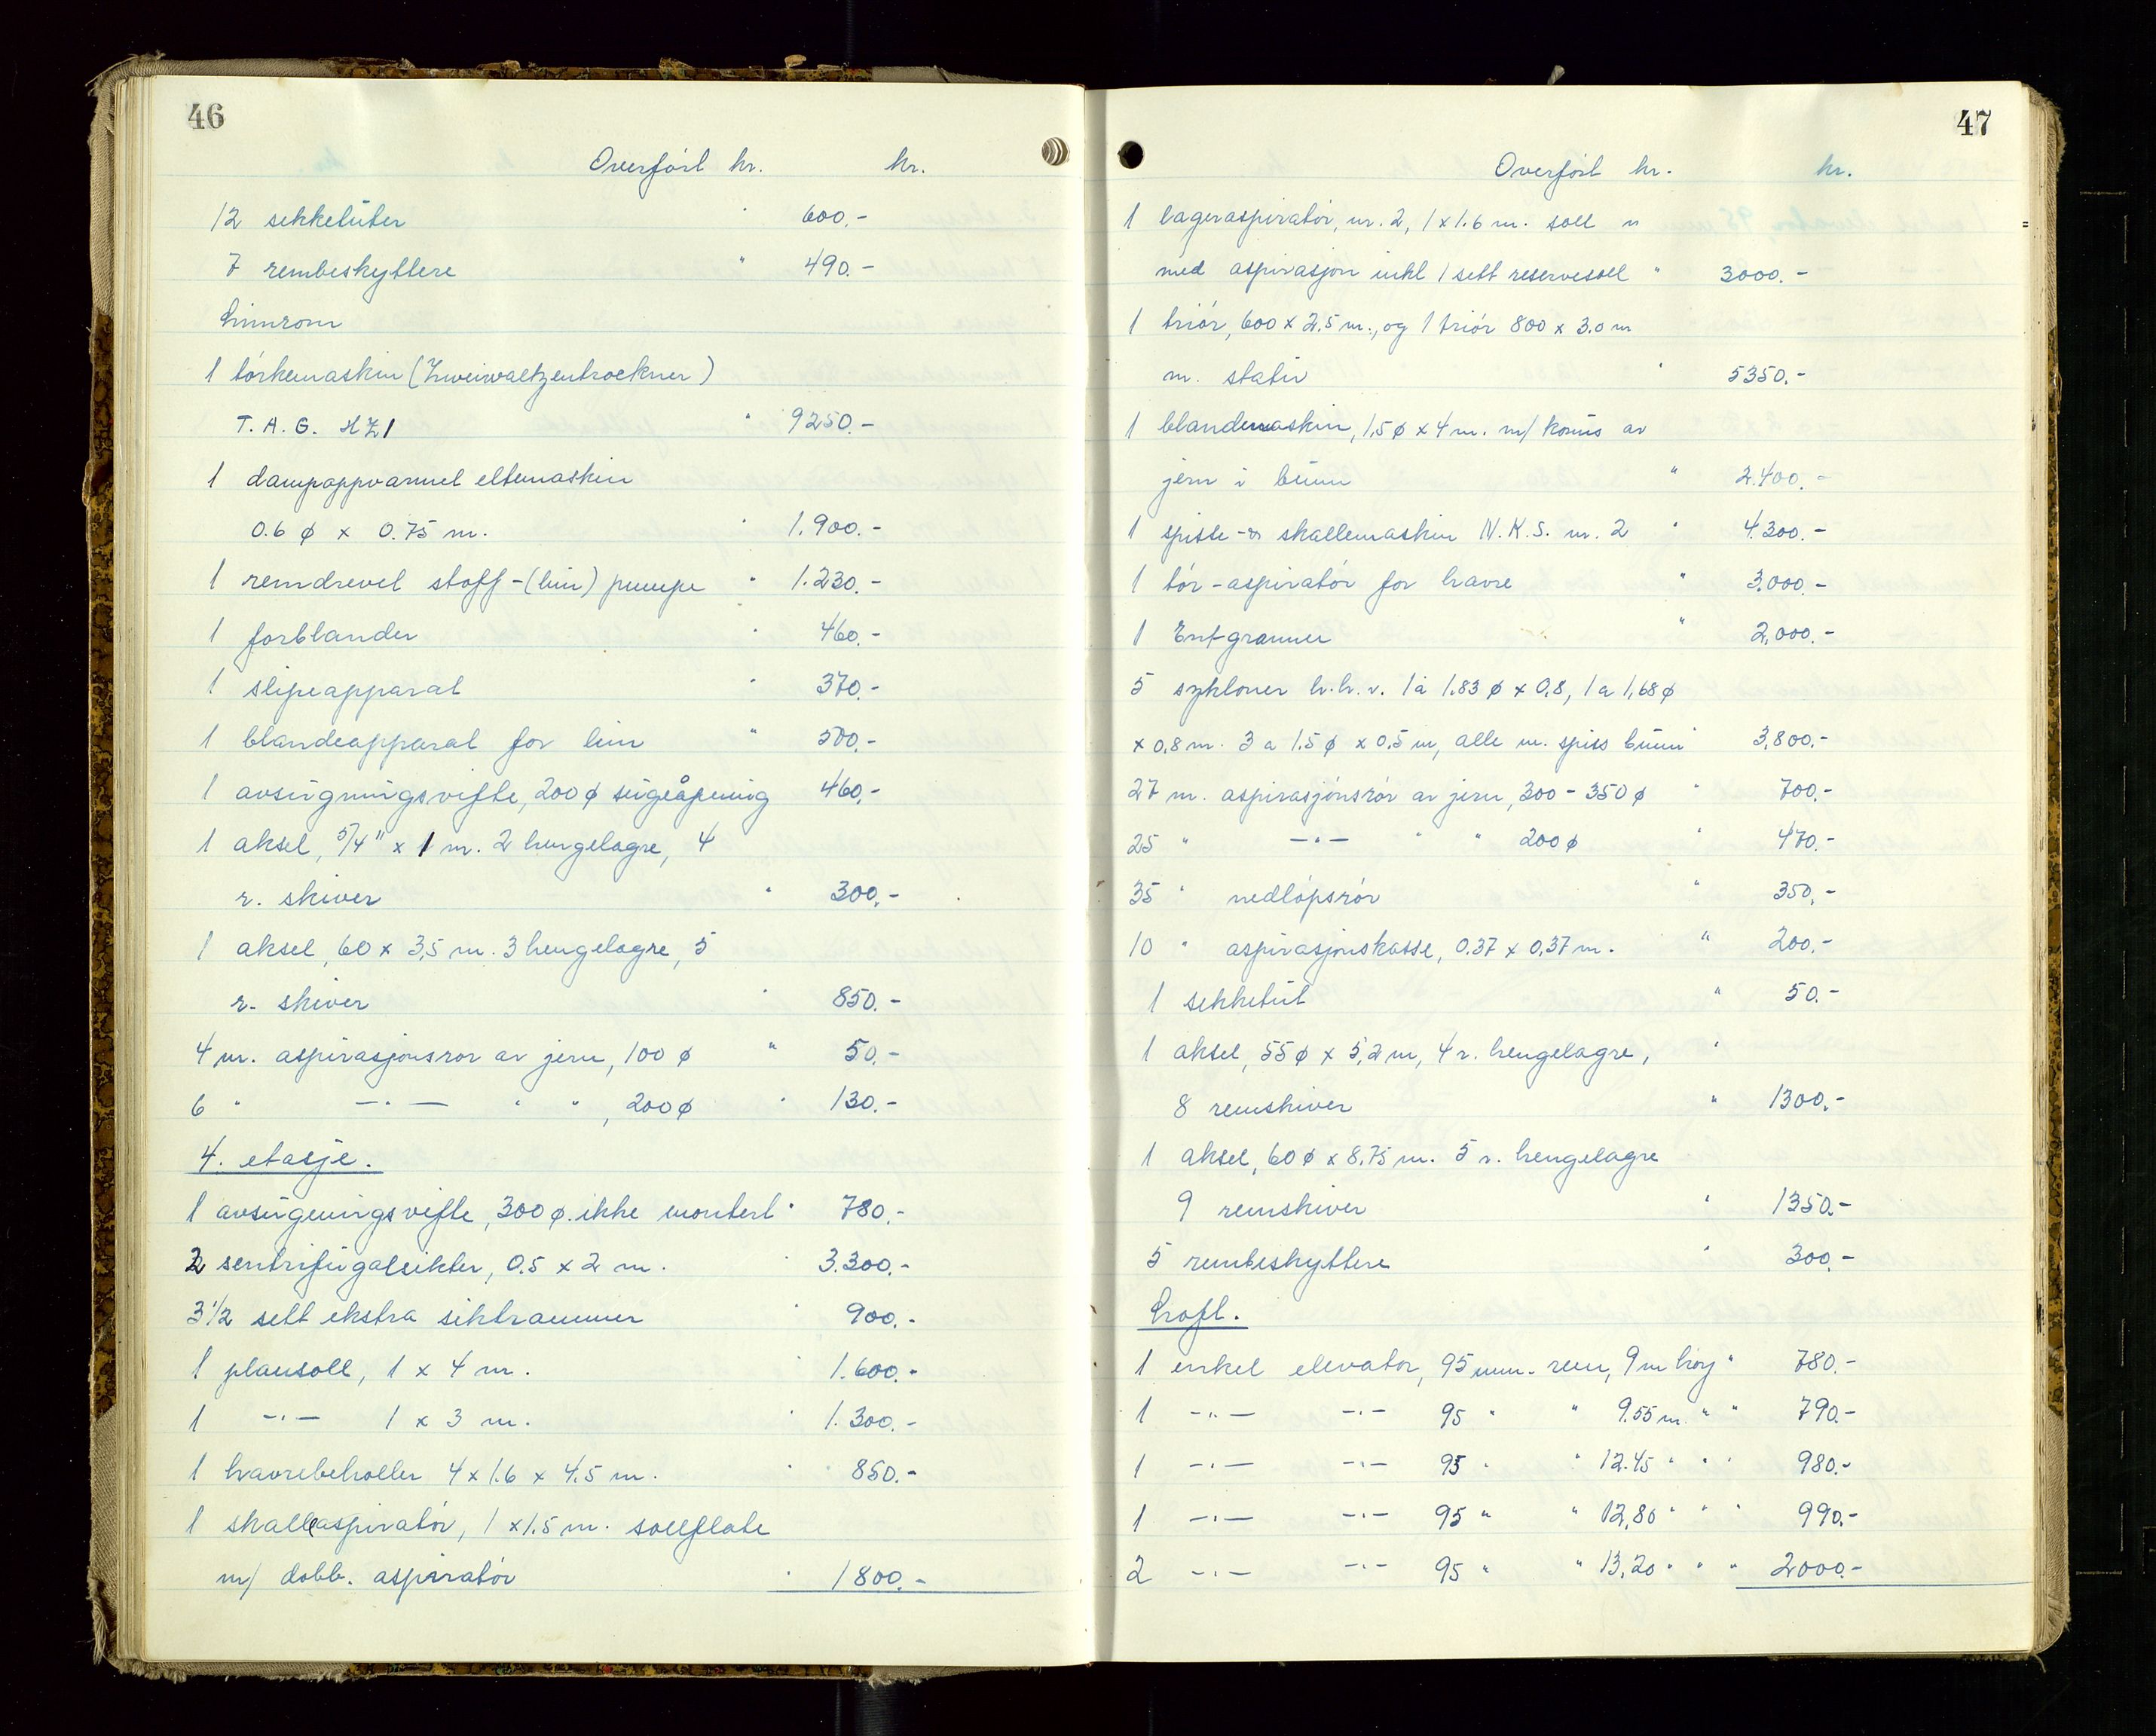 46
Overført kr. kr.
12 sekketuter " 600.-
7 rembeskyttere " 490.-
Limrom
1 tørkemaskin (Zweiwaltzentrockner)
T.A.G. HZ1 " 9250.-
1 dampoppvarmet eltemaskin
0.6 ø x 0.75 m. " 1.900.-
1 remdrevet stoff-(lim) pumpe " 1.230.-
1 forblander " 460.-
1 slipeapparat " 370.-
1 blandeapparat for lim " 500.-
1 avsugningsvifte, 200 ø sugeåpning 460.-
1 aksel, 5/4" x 1 m. 2 hengelagre, 4
r. skiver " 300.-
1 aksel, 60 x 3,5 m. 3 hengelagre, 5
r. skiver " 850.-
4 m. aspirasjonsrør av jern, 100 ø " 50.-
6 " -"- " " , 200 ø " 130.-
4. etasje.
1 avsugningsvifte, 300 ø. ikke montert " 780.-
2 sentrifugalsikter, 0.5 x 2 m. " 3.300.-
3 1/2 sett ekstra siktrammer " 900.-
1 plansoll, 1 x 4 m. " 1.600.-
1 -"- 1 x 3 m. " 1.300.-
1 havrebeholler 4 x 1.6 x 4.5 m. " 850.-
1 skalleaspiratør, 1 x 1.5 m. sollflate
m/ dobb. aspiratør " 1800.-
47
Overført kr. kr.
1 lageraspiratør, nr. 2, 1 x 1.6 m. soll
med aspirasjon inkl 1 sett reservesoll " 3000.-
1 triør, 600 x 2.5 m., og 1 triør 800 x 3.0 m
m. stativ " 5350.-
1 blandemaskin, 1,5 ø x 4 m. m/ konus av
jern i bunn " 2.400.-
1 spisse- & skallemaskin N.K.S. nr. 2 " 4.300.-
1 tør-aspiratør for havre " 3.000.-
1 Entgranner " 2.000.-
5 sykloner h.h.v. 1 à 1.83 ø x 0,8, 1 a 1,68 ø
x 0,8 m. 3 a 1.5 ø x 0.5 m, alle m. spiss bunn " 3.800.-
27 m. aspirasjonsrør av jern, 300 - 350 ø " 700.-
25 " -"- " " 200 ø " 470.-
35 " nedløpsrør " 350,-
10 " aspirasjonskasse, 0.37 x 0,37 m. " 200.-
1 sekketut " 50.-
1 aksel, 55 ø x 5,2 m, 4 r. hengelagre, "
8 remskiver " 1300.-
1 aksel, 60 ø x 8,75 m. 5 r. hengelagre
9 remskiver " 1350.-
5 rembeskyttere " 300.-
Loft.
1 enkel elevator, 95 mm. rem, 9 m høy " 780.-
1 -"- -"- 95 " " 9.55 m. " " 790.-
1 -"- -"- 95 " " 12.45 " " " 980.-
1 -"- -"- 95 " " 12,80 " " " 990.-
2 -"- -"- 95 " " 13,20 " " " 2000.-